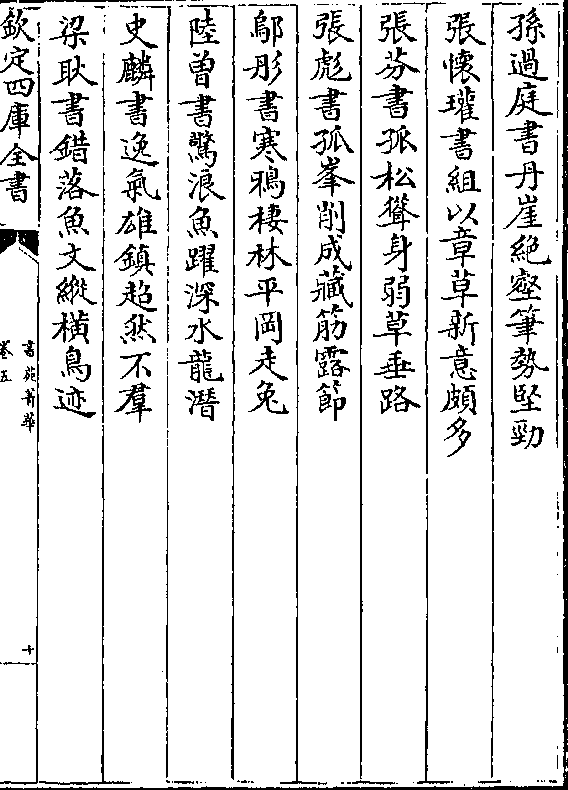 孫過庭書丹崖絕壑筆勢堅勁
張懷瓘書組以章草新意頗多
張芬書孤松聳身弱草垂路
張彪書孤峯削成藏筋露節
鄔彤書寒鴉棲林平岡走兔
陸曾書驚浪魚躍深水龍潛
史麟書逸氣雄鎮超然不羣
梁耿書錯落魚文縱横鳥迹
欽定四庫全書
書苑菁華
卷五
十